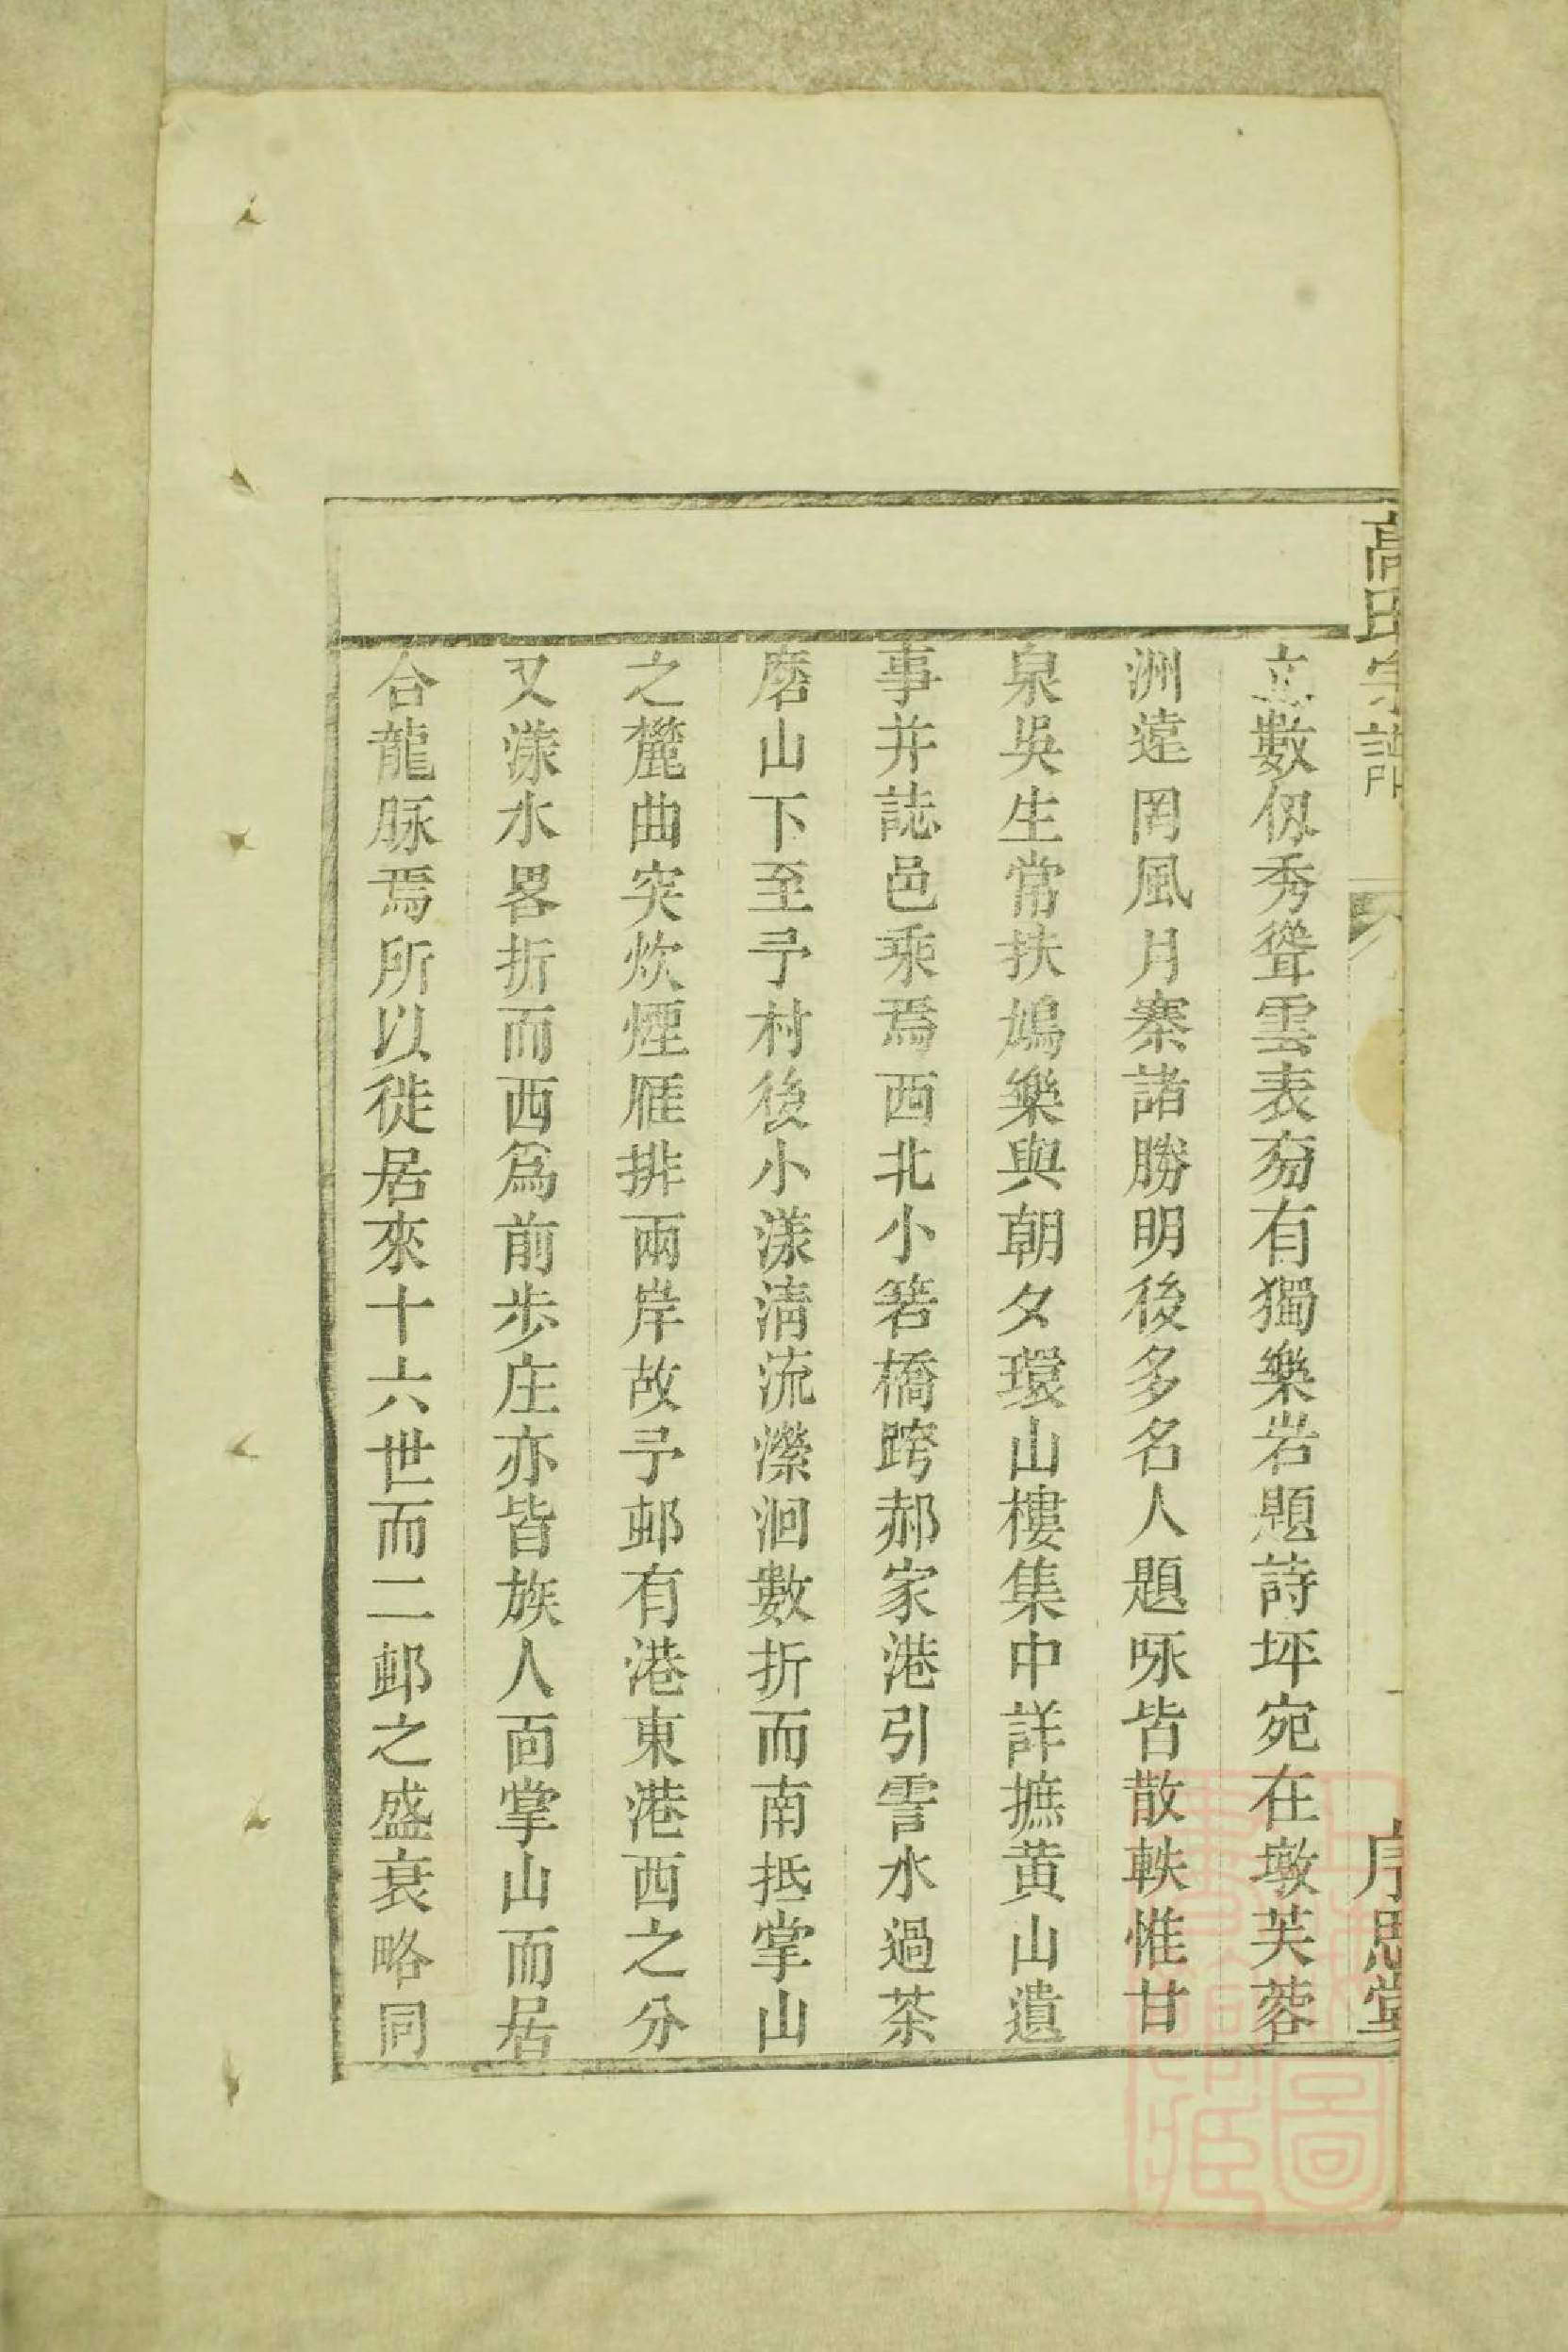 高氏宗譜
序思堂
立數仭秀聳雲表旁有獨樂岩題詩坪宛在墩芙蓉
洲遠罔風月寨諸勝明後多名人題咏皆散軼惟甘
泉吳生常扶鳩樂與朝夕環山樓集中詳摭黃山遺
事并誌邑乘焉西北小箬橋跨郝家港引霅水過茶
磨山下至予村後小漾清流瀠洄數折而南抵掌山
之麓曲突炊煙雁排兩岸故予邨有港東港西之分
又漾水畧折而西爲前步庄亦皆族人面掌山而居
合龍脉焉所以徙居來十六世而二邨之盛衰略同